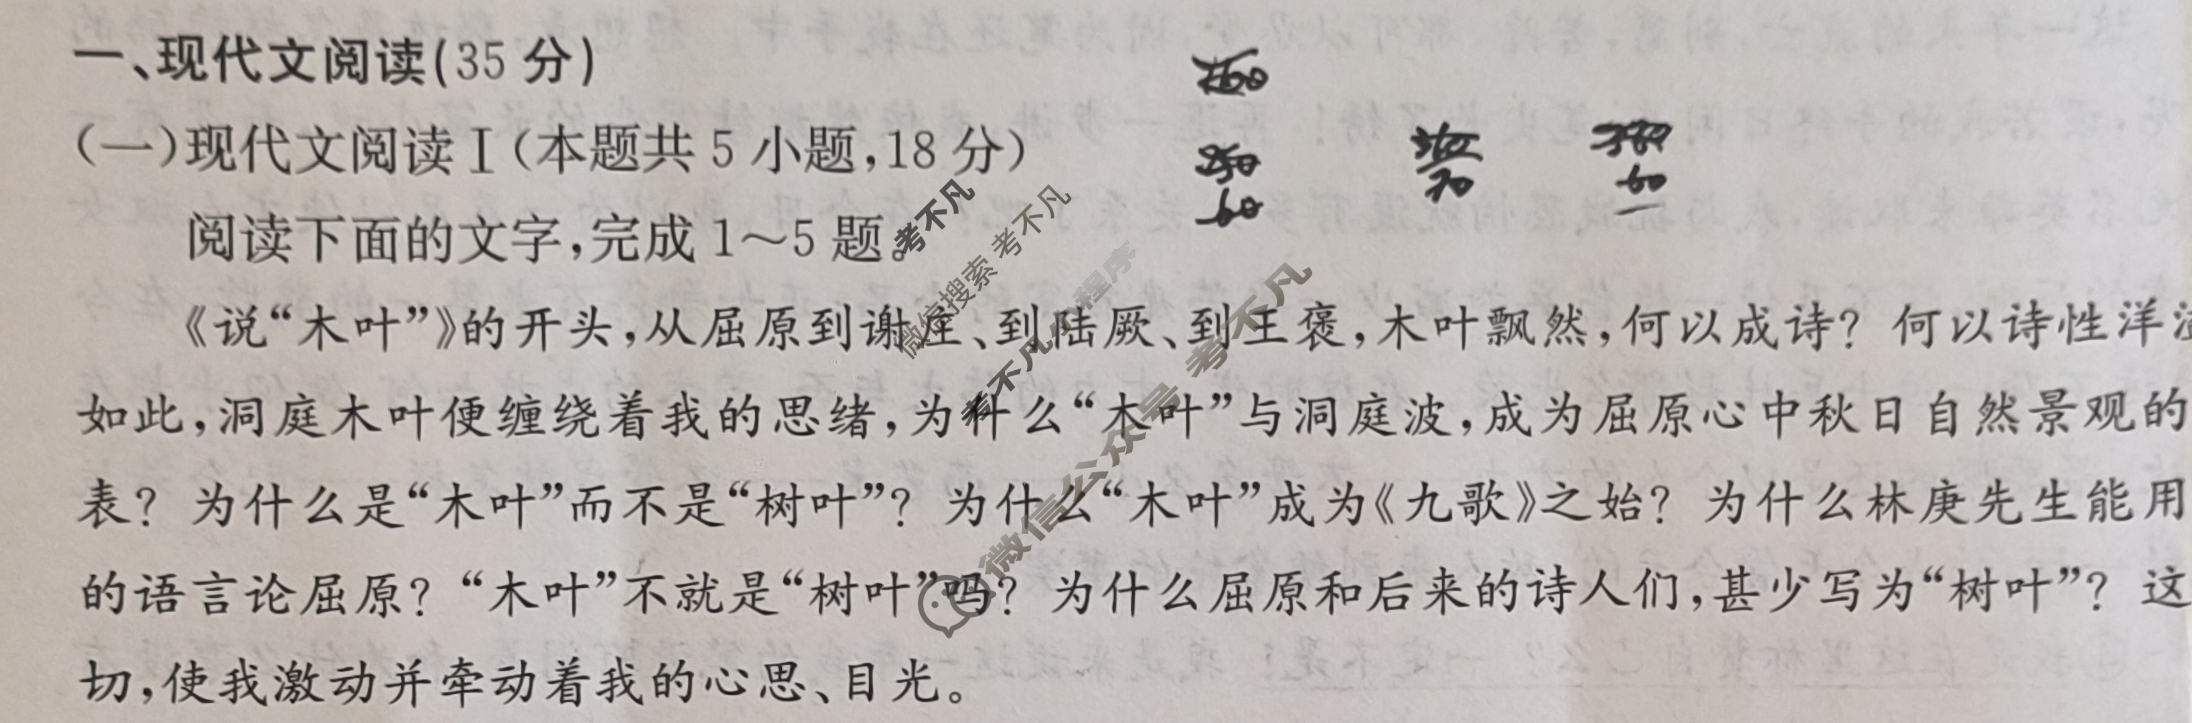 一、现代文阅读(35分)
(一)现代文阅读Ⅰ(本题共5小题,18分)
阅读下面的文字,完成1～5题。
《说“木叶”》的开头,从屈原到谢庄、到陆厥、到王褒,木叶飘然,何以成诗? 何以诗性洋
如此,洞庭木叶便缠绕着我的思绪,为什么“木叶”与洞庭波,成为屈原心中秋日自然景观的
表? 为什么是“木叶”而不是“树叶”? 为什么“木叶”成为《九歌》之始? 为什么林庚先生能用
的语言论屈原? “木叶”不就是“树叶”吗? 为什么屈原和后来的诗人们,甚少写为“树叶”? 这
切,使我激动并牵动着我的心思、目光。
考不凡
微信搜索 考不凡
考不凡 程序
微信公众号 考不凡
60
70
60